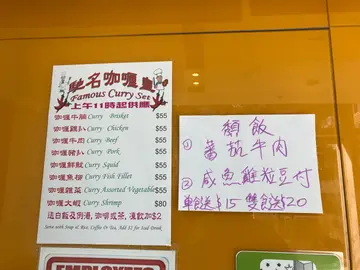 馳名咖喱皇
Famous Curry Set
上午11時起供應
咖喱牛腩 Curry Brisket $55
咖喱雞扒 Curry Chicken $55
咖喱牛肉 Curry Beef $55
咖喱豬扒 Curry Pork $55
咖喱鮮魷 Curry Squid $55
咖喱魚柳 Curry Fish Fillet $55
咖喱雜菜 Curry Assorted Vegetable $55
咖喱大蝦 Curry Shrimp $80
送白飯及例湯,咖啡或茶,凍飲加$2
Serve with Soup & Rice, Coffee Or Tea, Add $2 for Iced Drink
頹飯
① 蕃茄牛肉
② 咸魚雞粒豆付
單餸$15 雙餸$20
EMPLOYEES